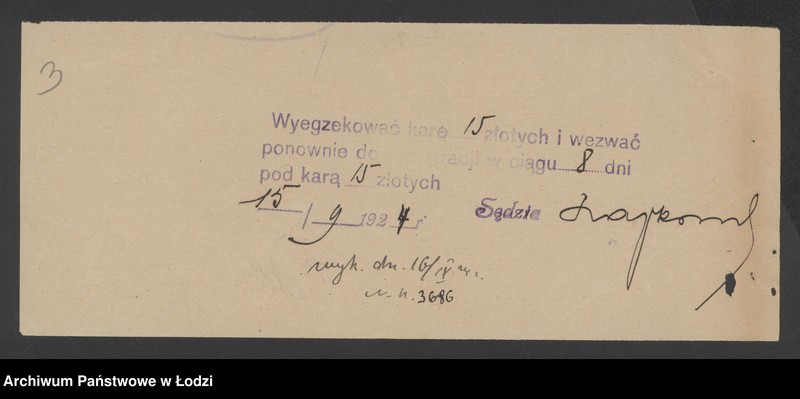 3
Wyegzekować karę 15 złotych i wezwać
ponownie do rejestracji w ciągu 8 dni
pod karą 15 złotych
15/9 1924 r.
Sędzia
wyk. dn. 16/IX
N. n. 3686
Archiwum Państwowe w Łodzi